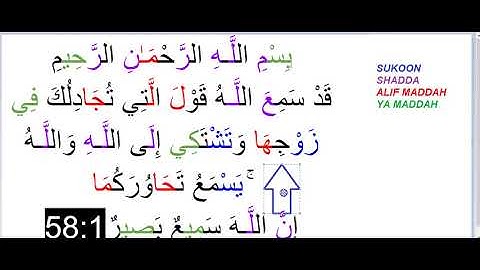 بِسْمِ اللَّـهِ الرَّحْمَـٰنِ الرَّحِيمِ
قَدْ سَمِعَ اللَّـهُ قَوْلَ الَّتِي تُجَادِلُكَ فِي
زَوْجِهَا وَتَشْتَكِي إِلَى اللَّـهِ وَاللَّـهُ
يَسْمَعُ تَحَاوُرَكُمَا ۚ
إِنَّ اللَّـهَ سَمِيعٌ بَصِيرٌ
58:1
SUKOON
SHADDA
ALIF MADDAH
YA MADDAH